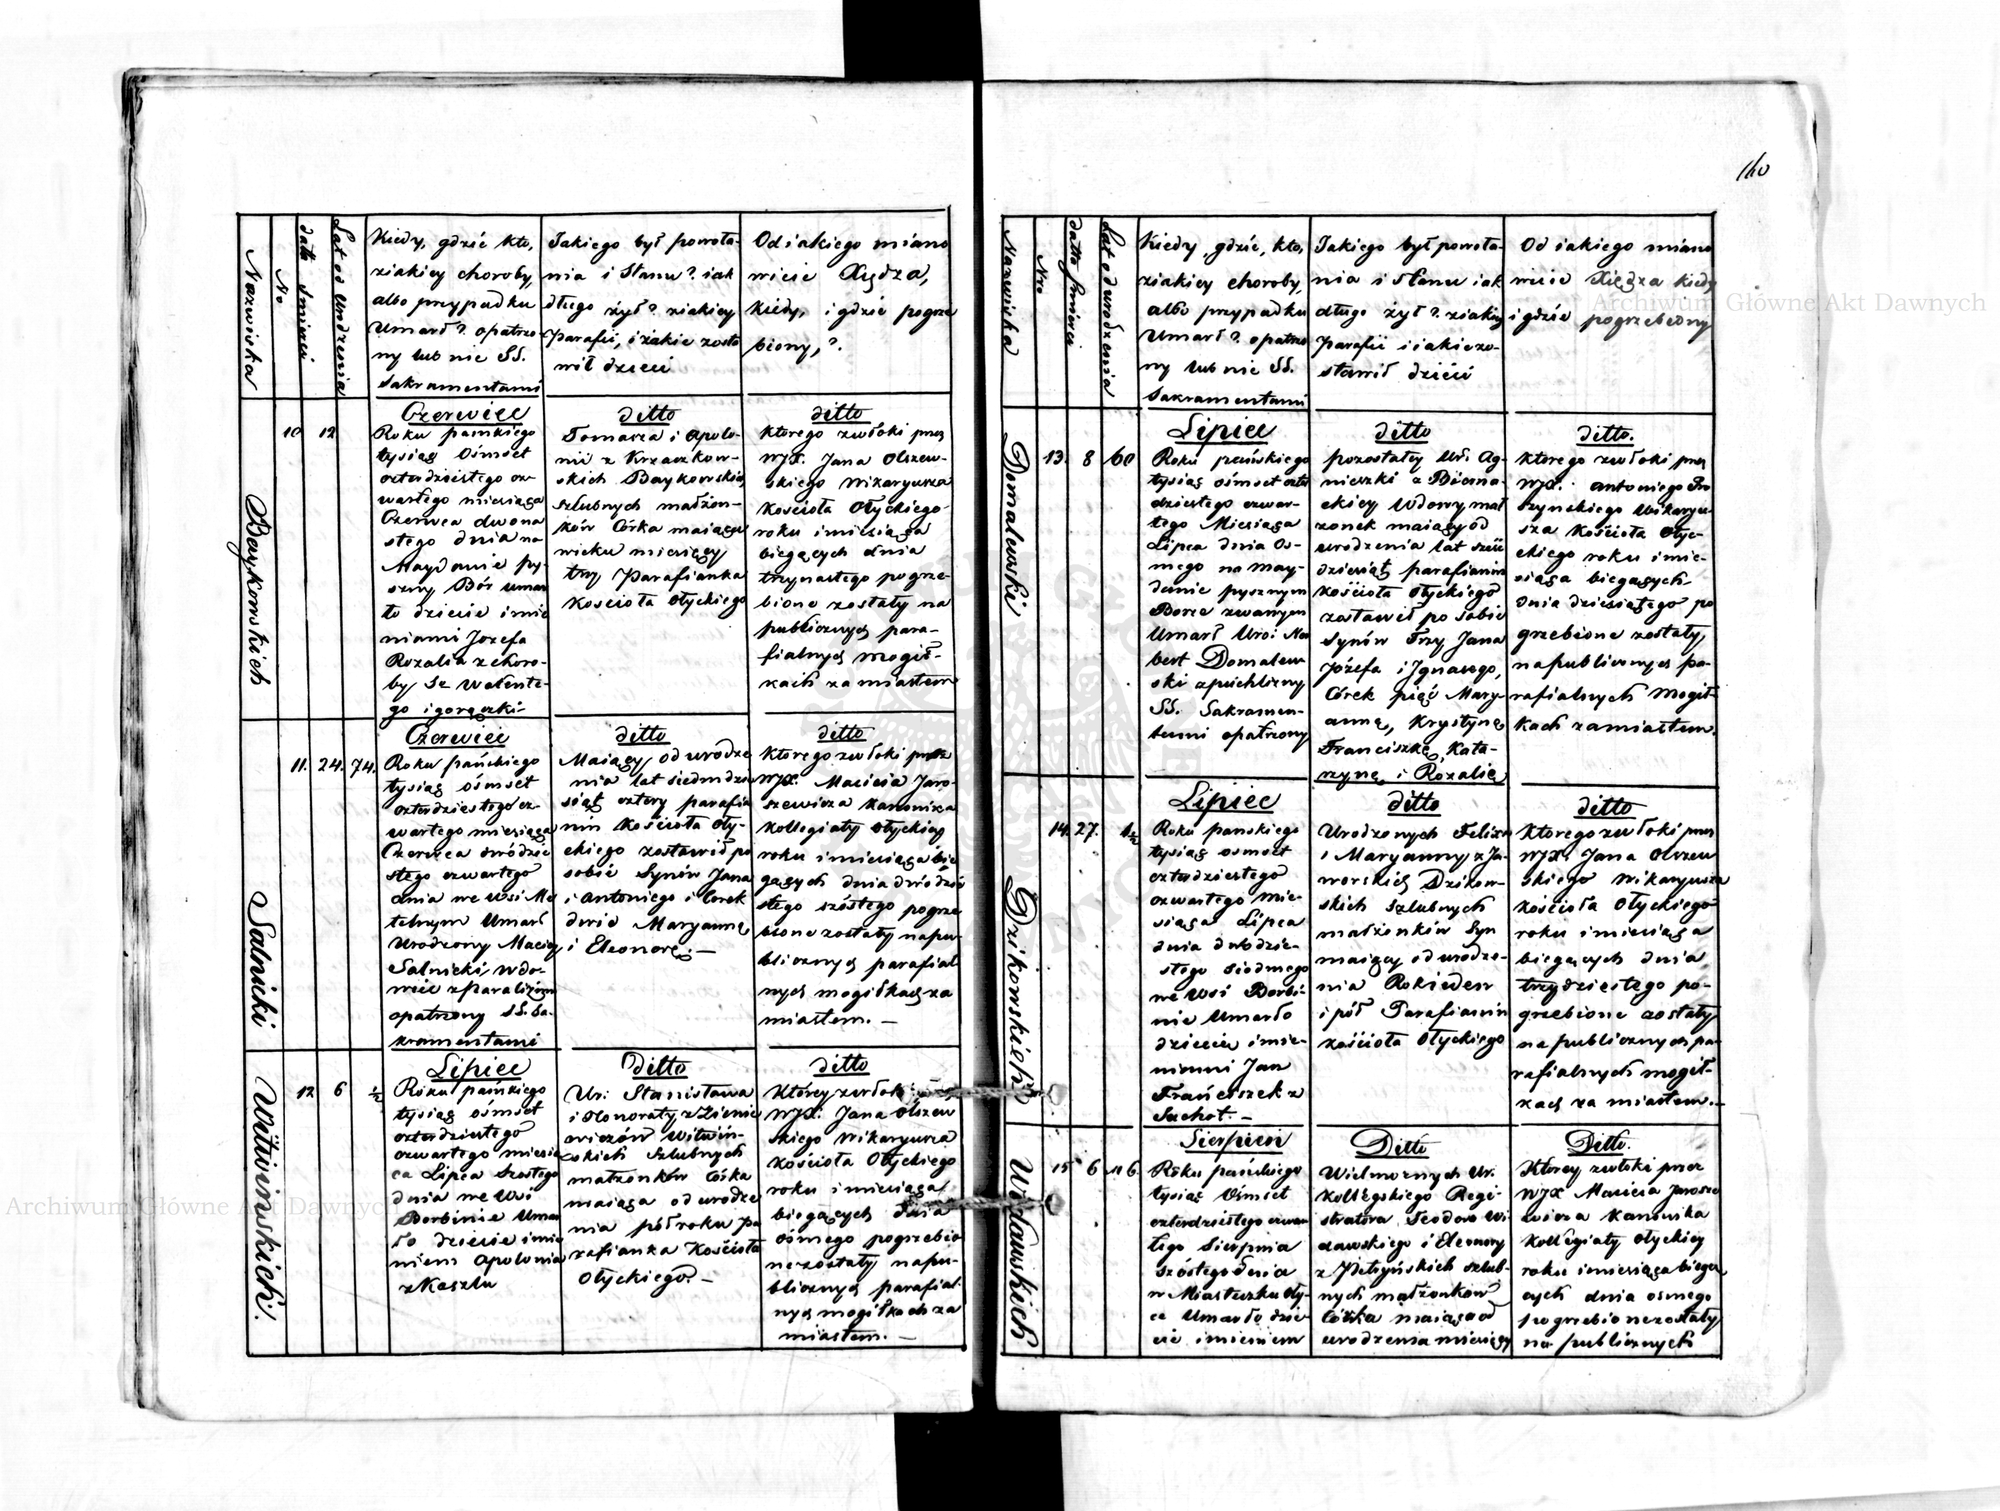 160
Nazwiska
No
data śmierci
Lat od urodzenia
Kiedy, gdzie kto,
ziakiey choroby,
albo przypadku
Umarł? opatrzo
ny lub nie SS.
Sakramentami
Jakiego był powoła-
nia i Stanu? iak
długo żył? ziakiey
Parafii, i iakie zosta
wił dzieci
Od iakiego miano
wicie Xsędza,
kiedy, i gdzie pogrze
biony,?
Baykowskich
10
12
Czerwiec
Roku pańskiego
tysiąc Ośmset
czterdziestego cz-
wartego miesiąca
Czerwca dwona
stego dnia na
Maydanie py-
szny Bór umar
ło dziecie imie
niami Jozefa
Rozalia z choro-
by Se Walente-
go i gorączki
ditto
Tomasza i Apolo-
nii z Krzaczkow-
skich Baykowskich
szlubnych małżon-
ków Córka maiąca
wieku miesięcy
trzy Parafianka
Kościoła Ołyckiego
ditto
Ktorego zwłoki przez
WJX. Jana Olszew-
skiego Wikaryusza
Kościoła Ołyckiego
roku i miesiąca
biegących dnia
trzynastego pogrze-
bione zostały na
publicznych para-
fialnych mogił-
kach za miastem
Salnicki
11.
24.
74.
Czerwiec
Roku pańskiego
tysiąc ośmset
czterdziestego cz-
wartego miesiąca
Czerwca dwódzie
stego czwartego
dnia we Wsi Me
telnym Umarł
Urodzony Maciey
Salnicki wdo-
wiec z paraliżem
opatrzony SS. Sa-
kramentami
ditto
Maiący od urodze
nia lat siedmdzie
siąt cztery parafia
nin Kościoła Oły-
ckiego zostawił po
sobie Synów Jana
i Antoniego i Corek
dwie Maryannę
i Eleonorę. —
ditto
Ktorego zwłoki przez
WJX. Macieia Jaro-
szewicza Kanonika
Kollegiaty Ołyckiey
roku i miesiąca bie-
gących dnia dwódzie
stego szóstego pogrze
bione zostały napu-
blicznych parafial
nych mogiłkach za
miastem. —
Witwinskich.
12
6
½
Lipiec
Roku pańskiego
tysiąc ośmset
czterdziestego
czwartego miesią
ca Lipca Szostego
dnia we Wsi
Dorbinie Umar
ło dziecie imie
niem Apolonia
z Kaszlu
Ditto
Ur: Stanisława
i Honoraty z Zienie
wiczów Witwiń-
skich Szlubnych
małżonków Córka
maiąca od urodze
nia pół roku pa
rafianka Kościoła
Ołyckiego. —
ditto
Którey zwłoki przez
WJX. Jana Olszew
skiego Wikaryusza
Kościoła Ołyckiego
roku i miesiąca
biegących dnia
ósmego pogrzebio
ne zostały napu-
blicznych parafial
nych mogiłkach za
miastem. —
Nazwiska
Nro
datto śmierci
Lat od urodzenia
Kiedy, gdzie, kto,
ziakiey choroby,
albo przypadku
Umarł? opatrzo
ny lub nie SS.
Sakramentami
Jakiego był powoła-
nia i Stanu iak
długo żył? ziakiey
Parafii i iakie zo-
stawił dzieci
Od iakiego miano
wicie Xiędza kiedy
i gdzie pogrzebiony
Domalewski
13.
8
60
Lipiec
Roku pańskiego
tysiąc ośmset czter
dziestego czwar-
tego Miesiąca
Lipca dnia Os-
mego na May-
danie pysznym
Borze zwanym
Umarł Uro: No
bert Domalew
ski z puchliny
SS. Sakramen-
tami opatrzony
ditto
pozostałey Ur: Ag-
nieszki z Bierna-
ckiey Wdowy mał
żonek maiący od
urodzenia lat sześć
dziesiąt parafianin
Kościoła Ołyckiego
zostawił po sobie
Synów Trzy Jana
Józefa i Ignacego,
Córek pięć Mary-
annę, Krystynę
Franciszkę, Kata-
rzynę i Rozalię
ditto.
Ktorego zwłoki przez
WJX: Antoniego Pro
szynskiego Wikaryu-
sza Kościoła Ołyc-
ckiego roku i mie-
siąca biegących
dnia dziesiątego po
grzebione zostały,
napublicznych pa-
rafialnych Mogił-
kach za miastem.
Dzikowskich
14.
27.
1½
Lipiec
Roku panskiego
tysiąc ośmset
czterdziestego
czwartego mie-
siąca Lipca
dnia dwódzie-
stego Siodmego
we Wsi Dorbi-
nie Umarło
dziecie imie-
niemi Jan
Franciszek z
Suchot. —
ditto
Urodzonych Felixa
i Maryanny z Ja-
worskich Dzikow-
skich Szlubnych
małżonków Syn
maiący od urodze-
nia Rok ieden
i pół Parafianin
kościoła Ołyckiego
ditto
Ktorego zwłoki przez
WJX. Jana Olszew
skiego Wikaryusza
kościoła Ołyckiego
roku i miesiąca
biegących dnia
trzydziestego po-
grzebione zostały
na publicznych pa-
rafialnych mogił-
kach za miastem. —
Widawskich
15
6
6.
Sierpień
Roku pańskiego
tysiąc Ośmset
czterdziestego czwar
tego Sierpnia
szóstego dnia
w Miasteczku Oły-
ce Umarło dzie-
cie imieniem
Ditto
Wielmoznych Ur.
kollegskiego Regi-
stratora Teodora Wi
dawskiego i Eleonory
z Petryńskich szlub-
nych małżonków
Córka maiąca od
urodzenia miesięcy
Ditto.
Którey zwłoki przez
WJX Macieia Jarosze
wicza Kanonika
Kollegiaty Ołyckiey
roku i miesiąca biegą
cych dnia osmego
pogrzebione zostały
na publicznych
Archiwum Główne Akt Dawnych
Archiwum Główne Akt Dawnych